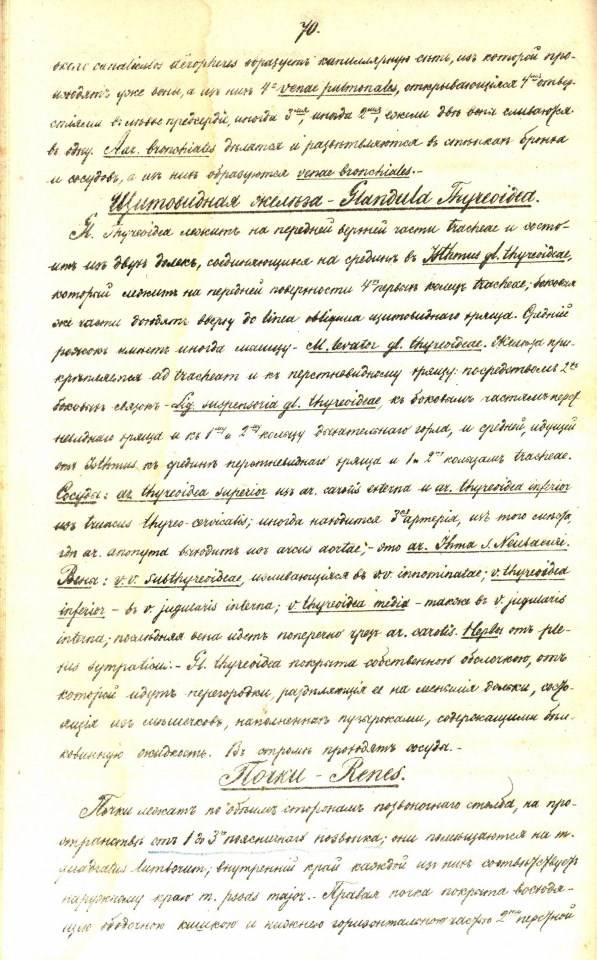 70.
около canaliculos aëropheres образуетъ капиллярную сѣть, изъ которой про-
исходятъ уже вены, а изъ нихъ 4е venae pulmonales, открывающіяся 4мя отвер-
стіями въ лѣвое предсердіе, иногда 3мя, иногда 2мя, ежели двѣ вены сливаются
въ одну. Aar. bronchiales дѣлятся и развѣтвляются въ стѣнкахъ бронха
и сосудовъ, а изъ нихъ образуются venae bronchiales.-
Щитовидная железа - Glandula Thyreoidea.
Gl. Thyreoidea лежитъ на передней верхней части tracheae и состо-
итъ изъ двухъ долекъ, соединяющихся на срединѣ въ Isthmus gl. thyreoideae,
который лежитъ на передней поверхности 4хъ первыхъ колецъ tracheae; боковыя
же части доходятъ вверху до linea obliqua щитовиднаго хряща. Средній
рожокъ имѣетъ иногда мышцу - M. levator gl. thyreoideae. Железа при-
крѣпляется ad tracheam и къ перстневидному хрящу: посредствомъ 2хъ
боковыхъ связокъ - Lig. suspensoria gl. thyreoideae, къ боковымъ частямъ перст
невиднаго хряща и къ 1му и 2му кольцу дыхательнаго горла, и средней, идущей
отъ Isthmus къ срединѣ перстневиднаго хряща и 1 и 2му кольцамъ tracheae.
Сосуды: ar. thyreoidea superior изъ ar. carotis externa и ar. thyreoidea inferior
изъ truncus thyreo-cervicalis; иногда находится 3ья артерія, изъ того мѣста,
гдѣ ar. anonyma выходитъ изъ arcus aortae; - это ar. Ihma s. Neubaueri.
Вена: v.v. subthyreoideae, изливающіяся въ v.v. innominatae; v. thyreoidea
inferior - въ v. jugularis interna; v. thyreoidea media - также въ v. jugularis
interna; послѣдняя вена идетъ поперечно чрезъ ar. carotis. Нервы отъ ple-
xus sympatici. - Gl. thyreoidea покрыта собственною оболочкою, отъ
которой идутъ перегородки, раздѣляющія ее на меньшія дольки, состо-
ящія изъ мѣшечковъ, наполненныхъ пузырьками, содержащими бѣл-
ковинную жидкость. Въ строму проходятъ сосуды. -
Почки - Renes.
Почки лежатъ по обѣимъ сторонамъ позвоночнаго столба, на про-
странствѣ отъ 1 до 3го поясничнаго позвонка; они помѣщаются на m.
quadratus lumborum; внутренній край каждой изъ нихъ соотвѣтствуетъ
наружному краю m. psoas major. - Правая почка покрыта восходя-
щую ободочною кишкою и нижнею горизонтальною частью 2хъ перстной